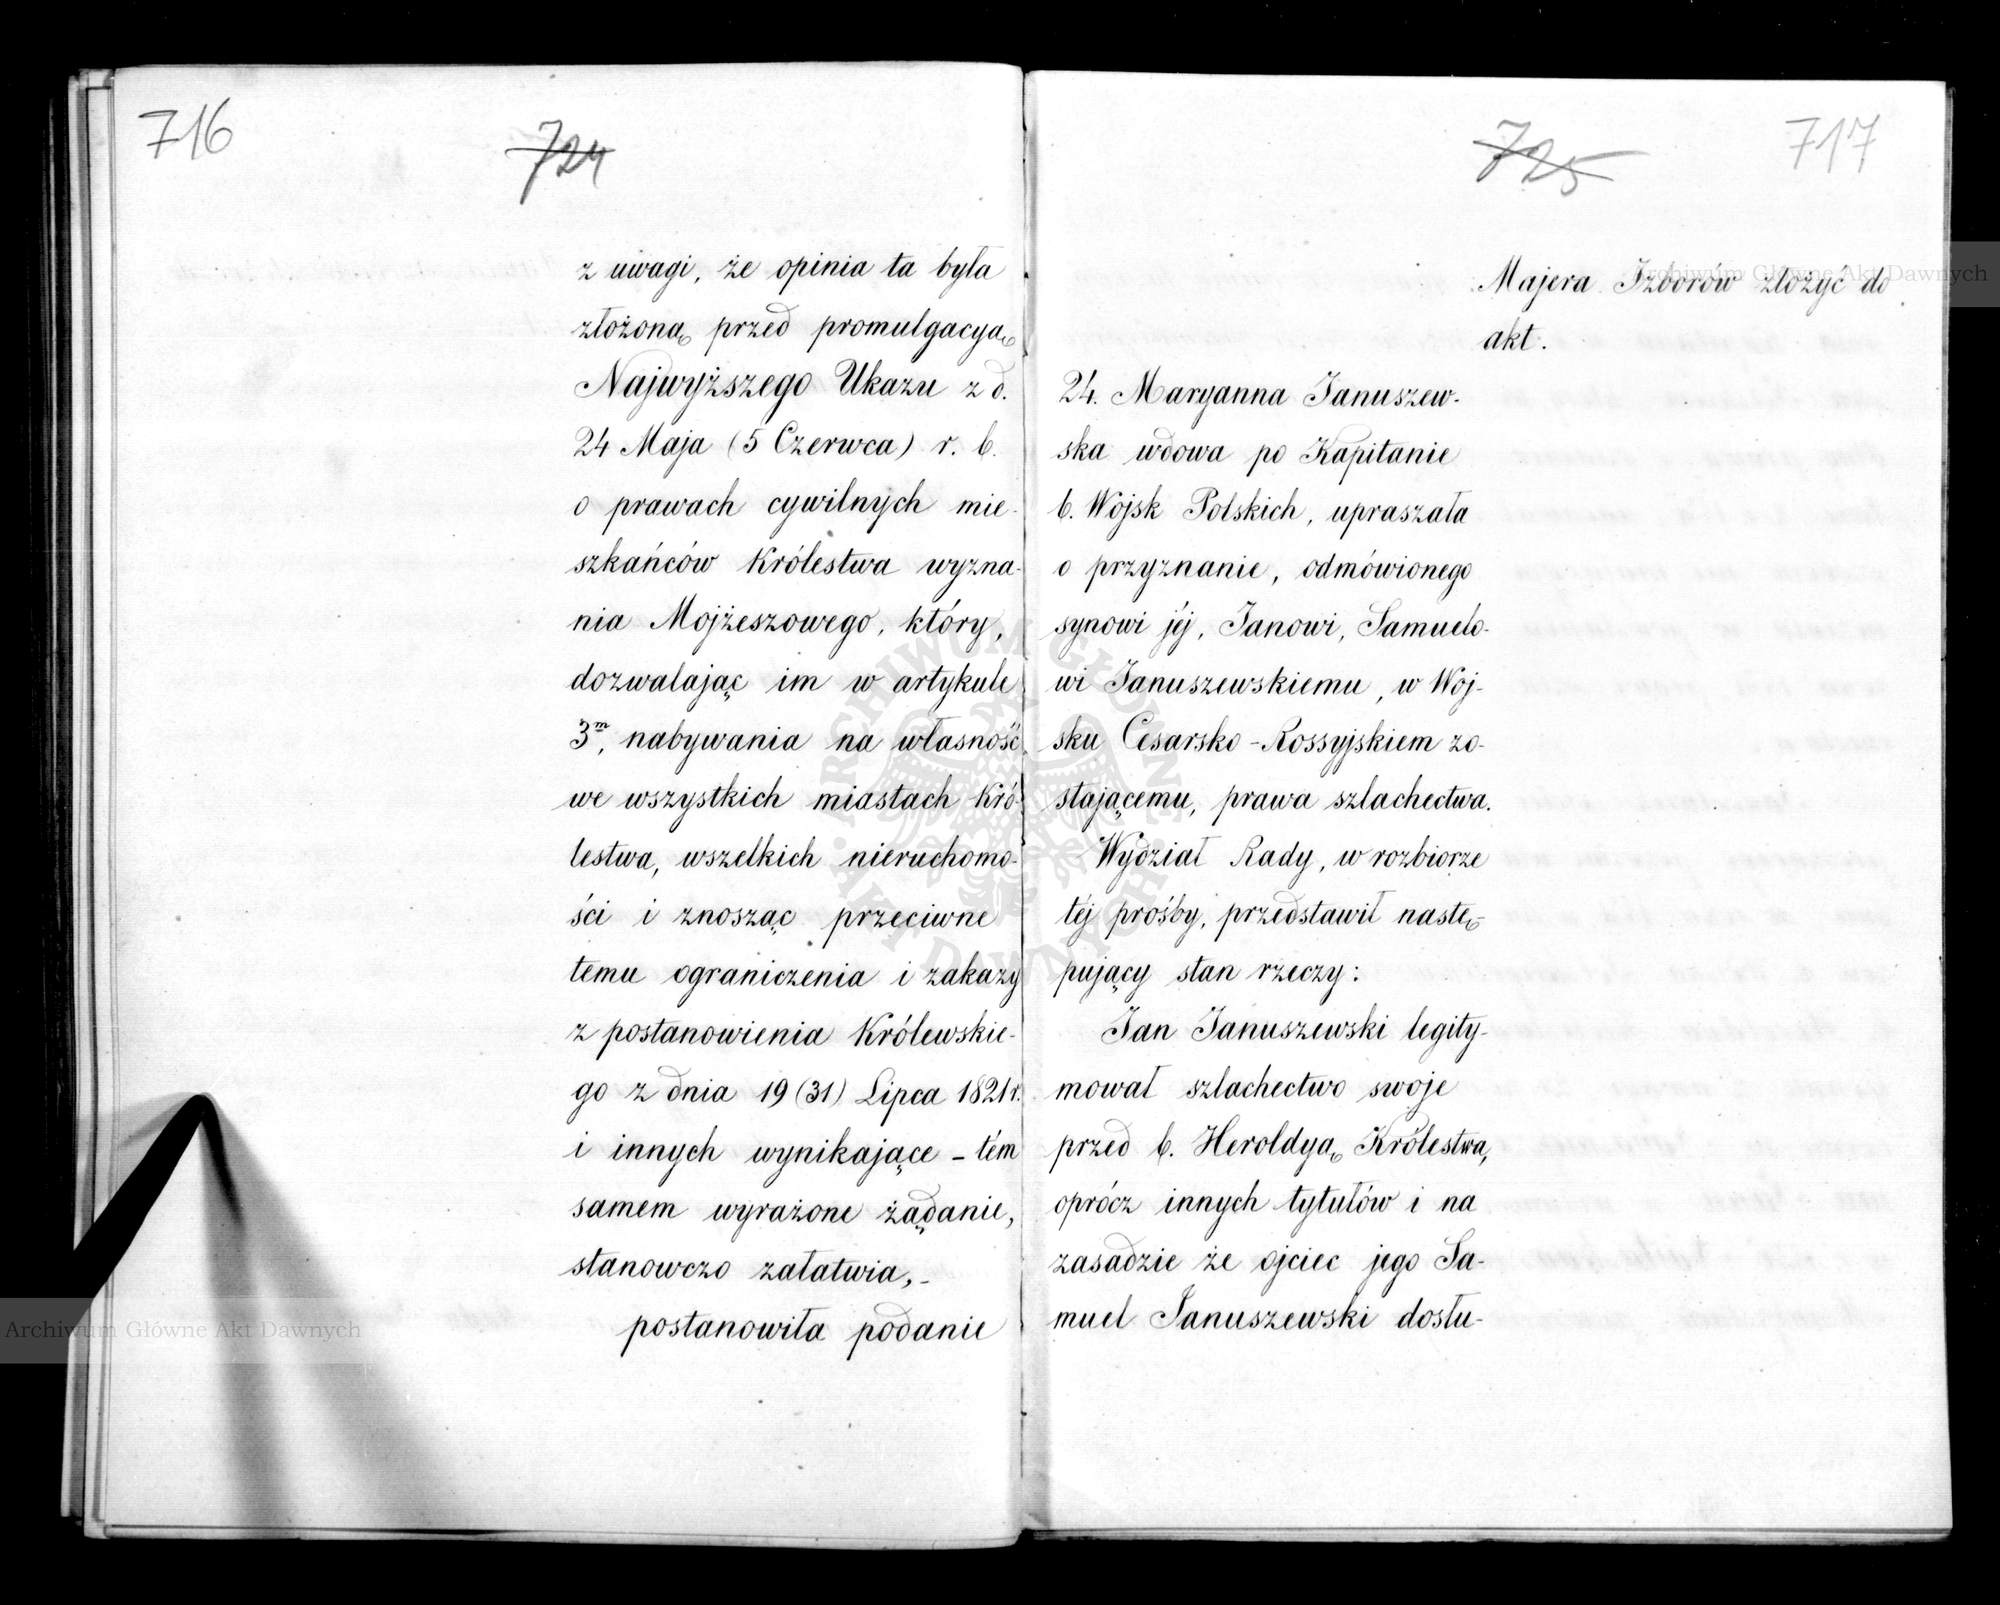 716
724
z uwagi, że opinia ta była
złożoną przed promulgacyą
Najwyższego Ukazu z d.
24 Maja (5 Czerwca) r. b.
o prawach cywilnych mie-
szkańców Królestwa wyzna-
nia Mojżeszowego, który,
dozwalając im w artykule
3m, nabywania na własność
we wszystkich miastach Kró-
lestwa, wszelkich nieruchomo-
ści i znosząc przeciwne
temu ograniczenia i zakazy
z postanowienia Królewskie-
go z dnia 19 (31) Lipca 1821 r.
i innych wynikające – tém
samem wyrażone żądanie,
stanowczo załatwia,-
postanowiła podanie
725
717
Majera Izborów złożyć do
akt.
24. Maryanna Januszew-
ska wdowa po Kapitanie
b. Wojsk Polskich, upraszała
o przyznanie, odmówionego
synowi jéj, Janowi, Samuelo-
wi Januszewskiemu, w Woj-
sku Cesarsko-Rossyjskiem zo-
stającemu, prawa szlachectwa.
Wydział Rady, w rozbiorze
téj prośby, przedstawił nastę-
pujący stan rzeczy:
Jan Januszewski legity-
mował szlachectwo swoje
przed b. Heroldyą Królestwa,
oprócz innych tytułów i na
zasadzie że ojciec jego Sa-
muel Januszewski dosłu-
Archiwum Główne Akt Dawnych
Archiwum Główne Akt Dawnych
ARCHIWUM GŁÓWNE AKT DAWNYCH